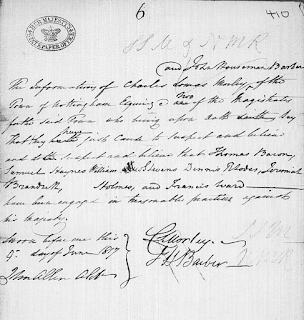 6
410
and John Houseman Barber
The Information of Charles Lomas Morley, of the
two
Town of Nottingham Esquire of the Magistrates
for the said Town who being upon Oath saith say
That they have just Cause to suspect and believe
and do suspect and believe that Thomas Bacon,
Samuel Haynes William Stevens Dennis Rhodes, Jeremiah
Brandreth, Holmes, and Francis Ward
have been engaged in treasonable practices against
his Majesty.
Sworn before me this
9th day of June 1817
John Allen
C L Morley
J H Barber